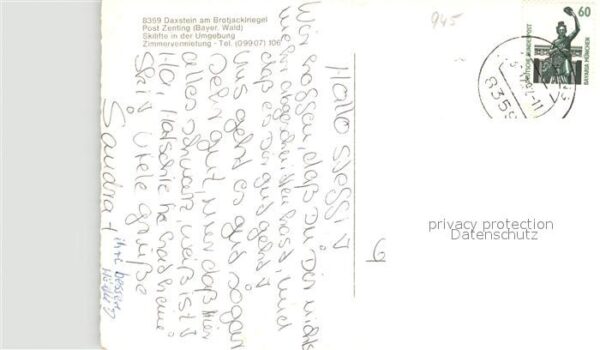 8359 Daxstein am Brotjackriegel
Post Zenting (Bayer. Wald)
Skilifte in der Umgebung
Zimmervermietung - Tel. (09907) 106
945
60
DEUTSCHE BUNDESPOST
BAVARIA MÜNCHEN
8359
Hallo Steffi
Wir hoffen, daß Du Dir nichts
mehr abgeschnitten hast, und
daß es Dir gut geht
Uns geht es gut sogar
sehr gut, nur daß hier
alles schwarz, weiß ist
Ski Viele grüße
Sandra +
ihre bessere
Hälfte
6
privacy protection
Datenschutz